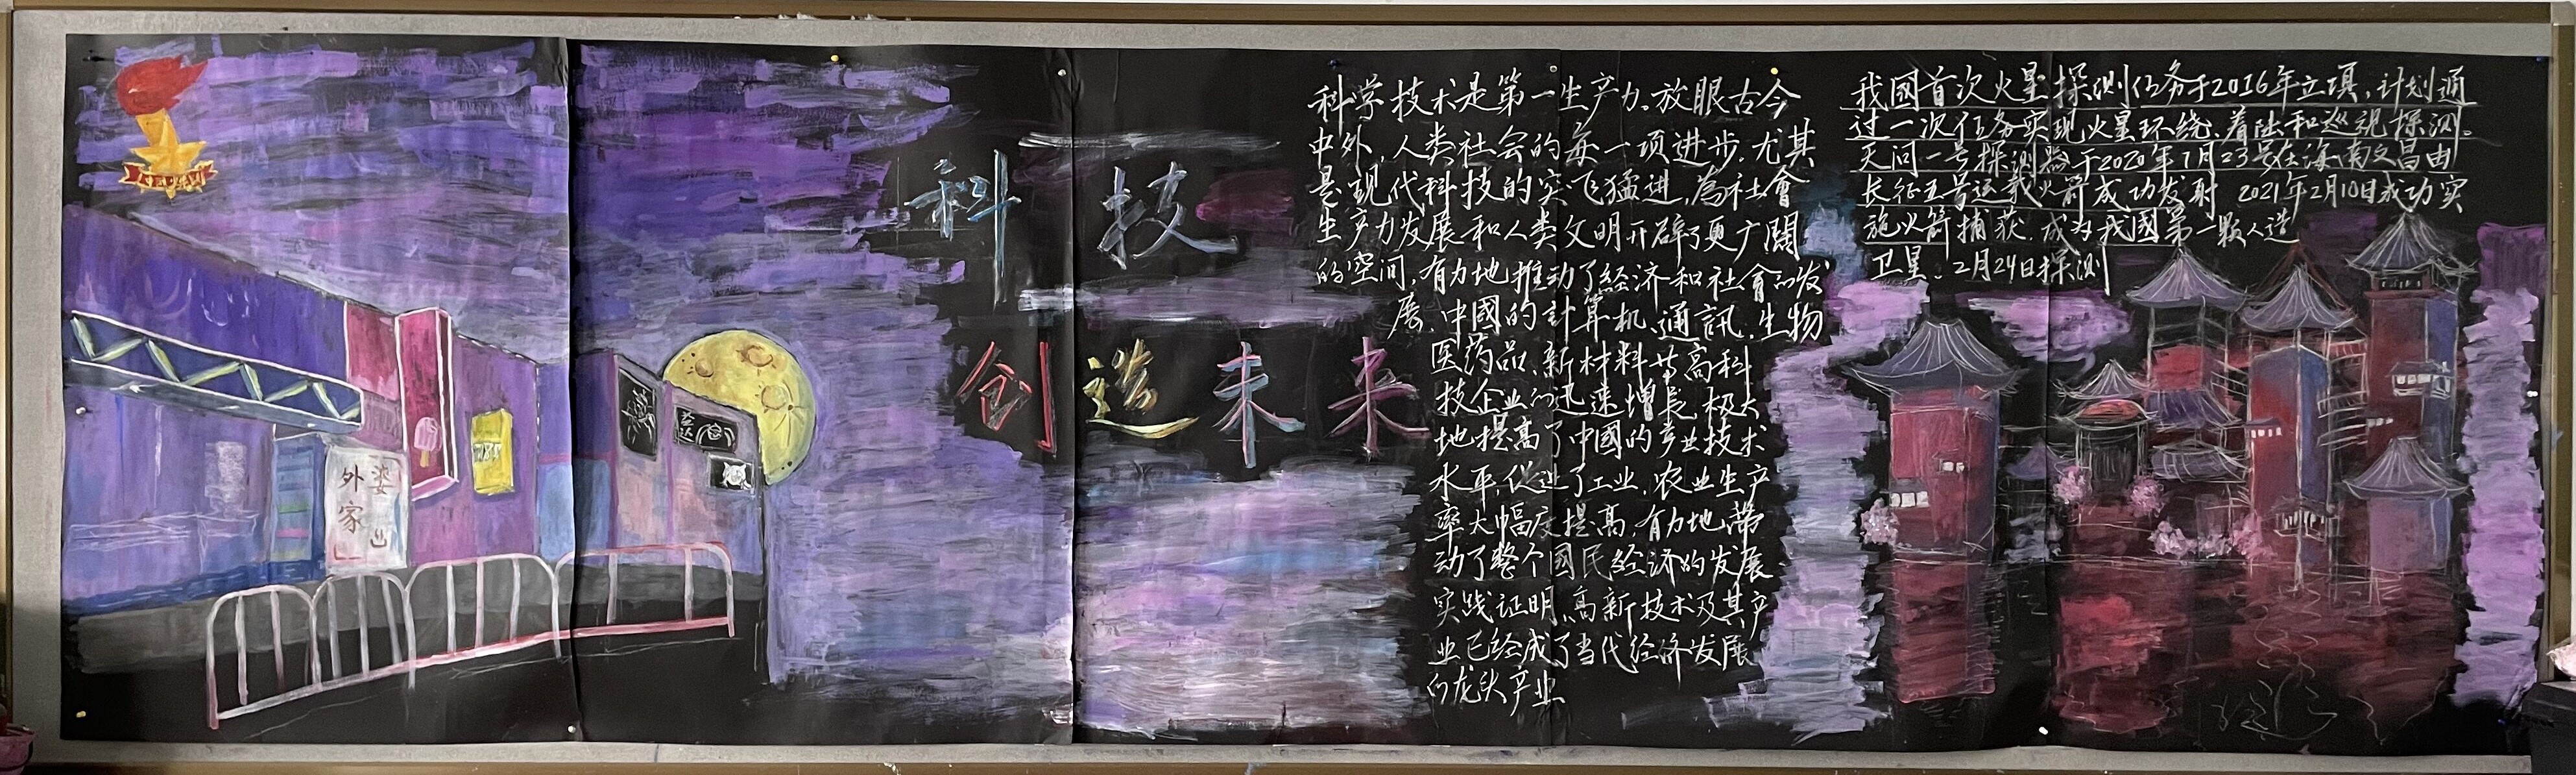 科技
创造未来
外婆
家
益达
科学技术是第一生产力。放眼古今
中外,人类社会的每一项进步,尤其
是现代科技的突飞猛进,為社會
生产力发展和人类文明开辟了更广闊
的空间,有力地推动了经济和社會的发
展。中國的計算机、通訊、生物
医药品、新材料等高科
技企业的迅速增長,极大
地提高了中國的产业技术
水平,促进了工业、农业生产
率大幅度提高,有力地带
动了整个國民经济的发展
实践证明,高新技术及其产
业已经成了当代经济发展
的龙头产业
我國首次火星探测任务于2016年立项,计划通
过一次任务实现火星环绕、着陆和巡视探测。
天问一号探测器于2020年7月23号在海南文昌由
长征五号运载火箭成功发射 2021年2月10日成功实
施火箭捕获,成为我國第一颗人造
卫星。2月24日探测